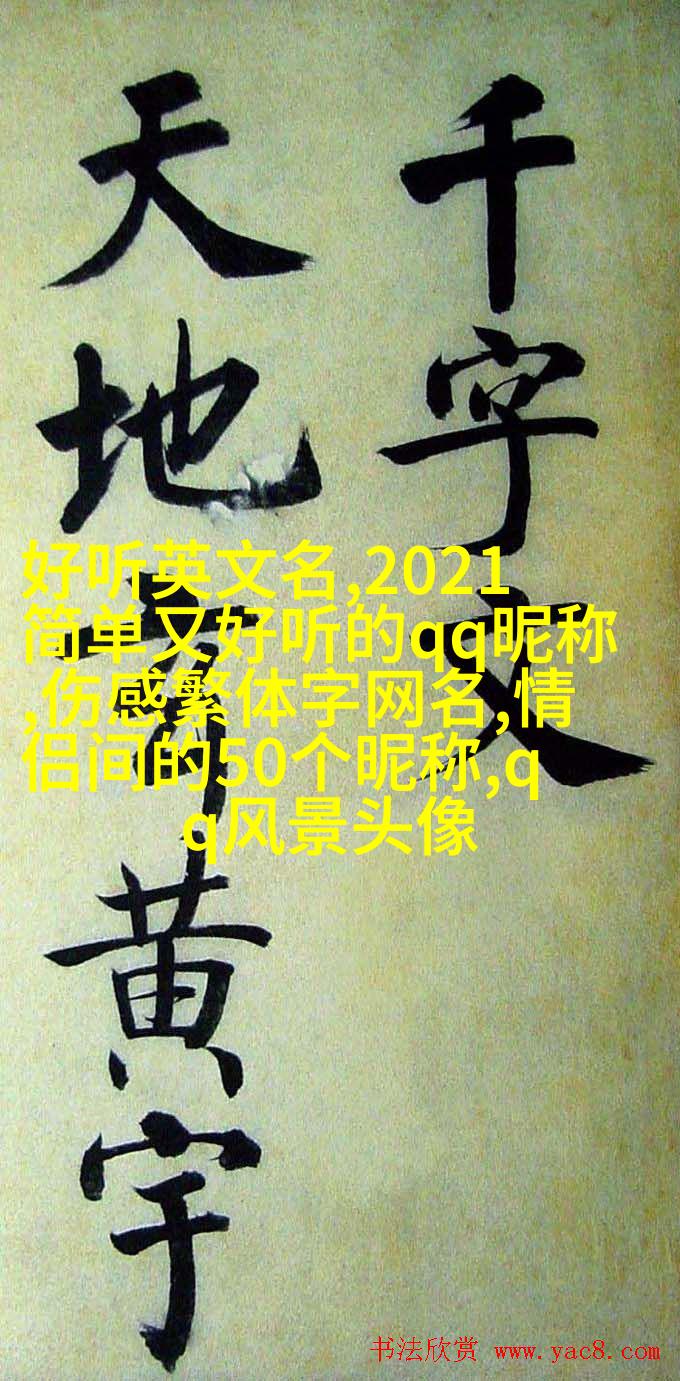 千字文
天地玄黄宇
好听英文名,2021
简单又好听的qq昵称
,伤感繁体字网名,情
侣间的50个昵称,q
q风景头像
书法欣赏 www.yac8.com